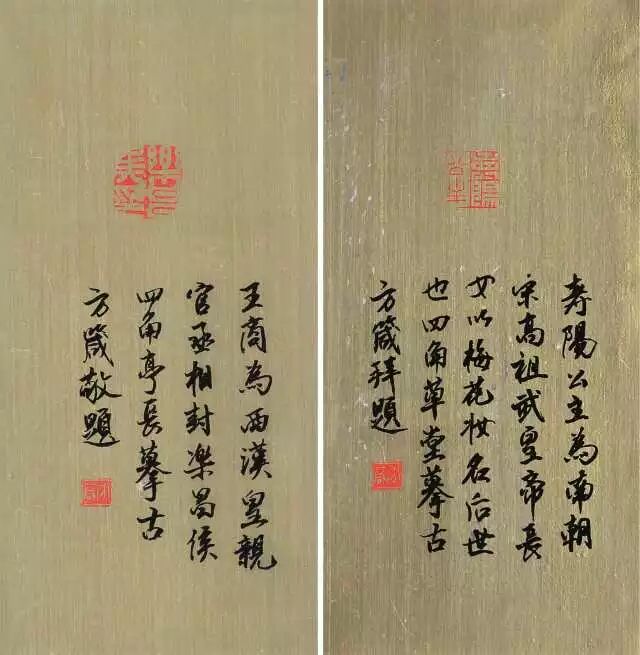 王商為西漢皇親
官丞相封樂昌侯
四角亭長摹古
方箴敬題
寿陽公主為南朝
宋高祖武皇帝長
女以梅花妝名后世
也四角草堂摹古
方箴拜題